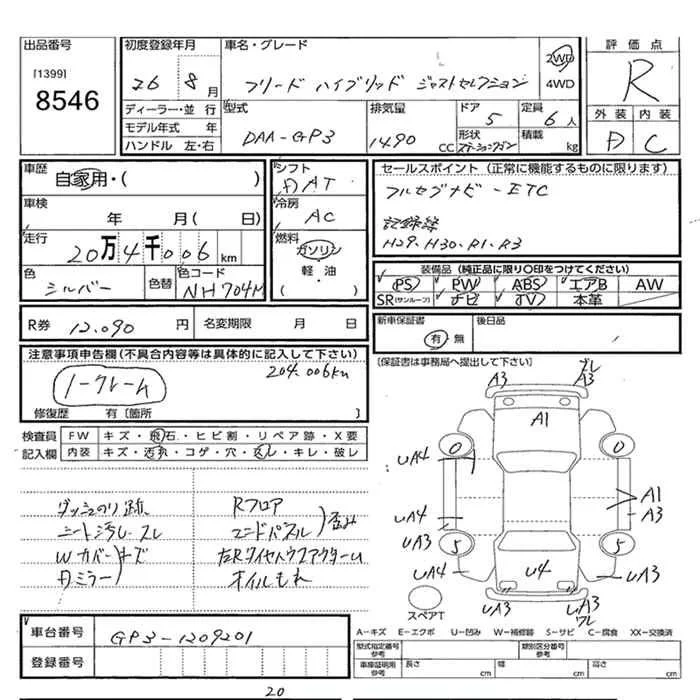 出品番号
[1399]
8546
初度登録年月
26 8月
車名・グレード
フリード ハイブリッド ジャストセレクション
2WD
4WD
評価点
R
外装 内装
D C
ディーラー・並行
モデル年式 年
ハンドル 左・右
型式
DAA-GP3
排気量
1490 CC
ドア
5
定員
6人
形状
ステーションワゴン
積載
kg
車歴
自家用・( )
車検
年 月( 日)
走行
20万4千006 km
色
シルバー
色替
色コード
NH704M
シフト
DAT
冷房
AC
燃料
ガソリン
軽・油
セールスポイント(正常に機能するものに限ります)
フルセグナビ-ETC
記録簿
H29、H30、R1、R3
装備品(純正品に限り○印をつけてください)
PS PW ABS エアB AW
SR(サンルーフ) ナビ TV 本革
R券 12,090 円
名変期限 月 日
新車保証書
有 無
後日品
[保証書は事務局へ提出して下さい]
注意事項申告欄(不具合内容等は具体的に記入して下さい)
204,006km
ノークレーム
修復歴 有[箇所 ]
検査員
記入欄
FW キズ・飛石・ヒビ割・リペア跡・X要
内装 キズ・汚れ・コゲ・穴・スレ・キレ・破レ
ダッシュのり跡
シート汚レ.スレ
Wカバー キズ
Dミラー
Rフロア
エンドパネル
歪み
左Rタイヤハウスアウター凹
オイルもれ
A3
ズレ
A3
A1
0
0
UA4
UA4
UA3
UA4
5
5
A1
A3
U4
UA3
UA3
UA3
ワレ
スペアT
A-キズ E-エクボ U-凹み W-補修跡 S-サビ C-腐食 XX-交換済
車台番号
GP3-1209201
登録番号
型式指定番号
参考
類別区分番号
参考
車庫証明用
参考
長さ cm
幅 cm
高さ cm
20